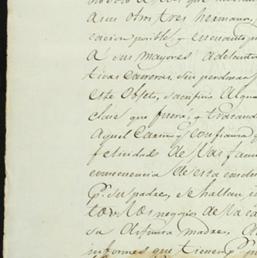 a sus otros tres hermanos,
cacion posible, y en cuanto p
á sus mayores adelanta
tivas carreras, sin perdonar
este objeto, sacrificio alguno
clase que fuera; y trocando
aquel cariño y confianza y
felicidad de las fam
consecuencia de esta
pr. su padre, se hallan en
con los negocios de la ca
su difunta madre. A
informes que tienen pr.